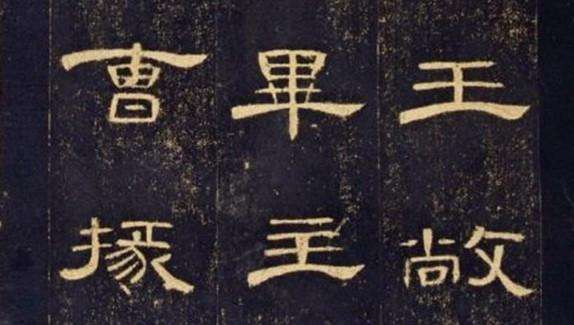 王敞
畢主
曹掾